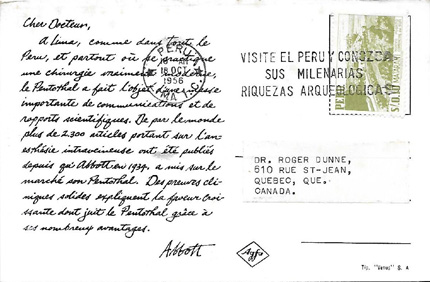 Cher Docteur,
A Lima, comme dans tout le
Perou, et partout où se pratique
une chirurgie vraiment moderne,
le Pentothal a fait l'objet d'une masse
importante de communications et de
rapports scientifiques. De par le monde
plus de 2.300 articles portant sur l'an-
esthésie intraveineuse ont été publiés
depuis qu'Abbott en 1934, a mis sur le
marché son Pentothal. Des preuves cli-
niques solides expliquent la faveur crois-
sante dont jouit le Pentothal grâce à
ses nombreux avantages.
Abbott
PERU
18 OCT
1956
LIMA
VISITE EL PERU Y CONOZCA
SUS MILENARIAS
RIQUEZAS ARQUEOLOGICAS
S/o. 0.10
DR. ROGER DUNNE,
510 RUE ST-JEAN,
QUEBEC, QUE.
CANADA.
Agfa
Tip. "Varese" S. A